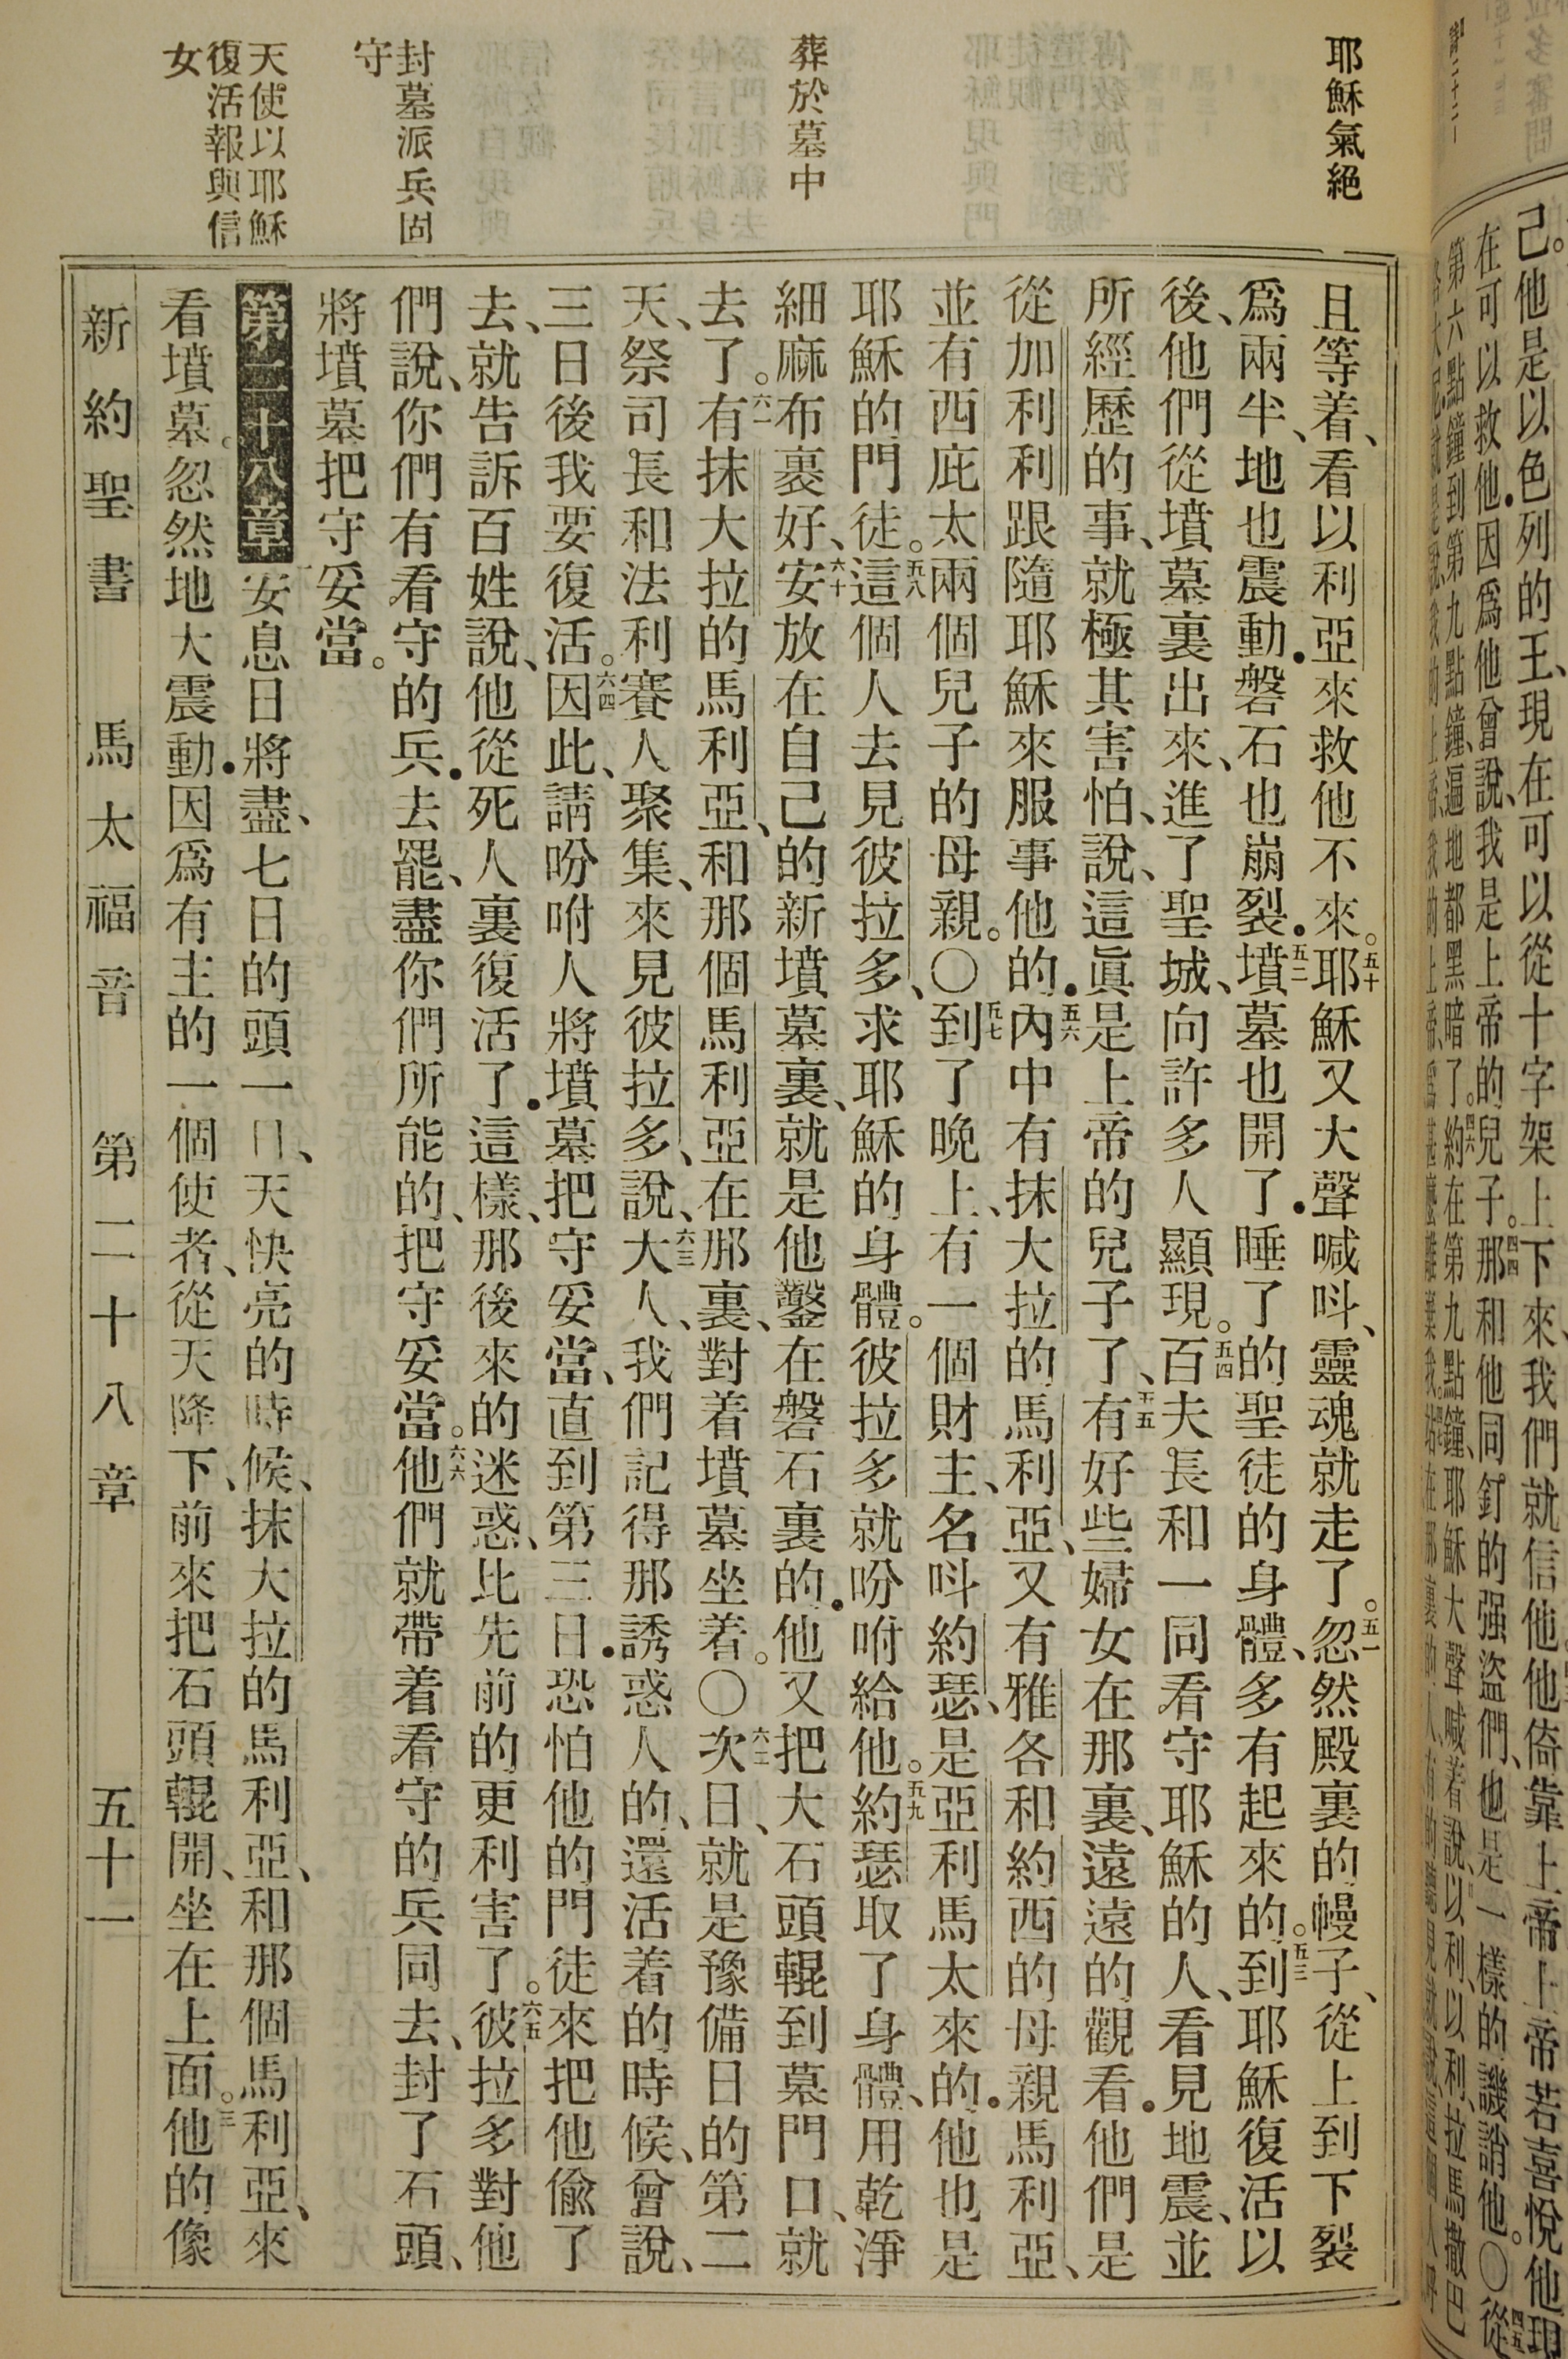 耶穌氣絕
葬於墓中
封墓派兵固
守
天使以耶穌
復活報與信
女
且等着、看以利亞來救他不來。五十耶穌又大聲喊呌、靈魂就走了。五一忽然殿裏的幔子、從上到下裂
爲兩半、地也震動．磐石也崩裂．五二墳墓也開了．睡了的聖徒的身體、多有起來的。五三到耶穌復活以
後、他們從墳墓裏出來、進了聖城、向許多人顯現。五四百夫長和一同看守耶穌的人、看見地震、並
所經歷的事、就極其害怕、說、這眞是上帝的兒子了、五五有好些婦女在那裏、遠遠的觀看．他們是
從加利利跟隨耶穌來服事他的．五六內中有抹大拉的馬利亞、又有雅各和約西的母親馬利亞、
並有西庇太兩個兒子的母親。〇五七到了晚上、有一個財主、名呌約瑟、是亞利馬太來的．他也是
耶穌的門徒。五八這個人去見彼拉多、求耶穌的身體。彼拉多就吩咐給他。五九約瑟取了身體、用乾淨
細麻布裹好、六十安放在自己的新墳墓裏、就是他鑿在磐石裏的．他又把大石頭輥到墓門口、就
去了。六一有抹大拉的馬利亞、和那個馬利亞在那裏、對着墳墓坐着。〇六二次日、就是豫備日的第二
天、祭司長和法利賽人聚集、來見彼拉多、說、六三大人、我們記得那誘惑人的、還活着的時候、曾說、
三日後我要復活。六四因此、請吩咐人將墳墓把守妥當、直到第三日．恐怕他的門徒來把他偸了
去、就告訴百姓說、他從死人裏復活了．這樣、那後來的迷惑、比先前的更利害了。六五彼拉多對他
們說、你們有看守的兵．去罷、盡你們所能的、把守妥當。六六他們就帶着看守的兵同去、封了石頭、
將墳墓把守妥當。
第二十八章一安息日將盡、七日的頭一日、天快亮的時候、抹大拉的馬利亞、和那個馬利亞、來
看墳墓。忽然地大震動．因爲有主的一個使者、從天降下、前來把石頭輥開、坐在上面。三他的像
新約聖書 馬太福音 第二十八章 五十一
己。他是以色列的王、現在可以從十字架上下來、我們就信他他倚靠上帝上帝若喜悅他現
在可以救他．因爲他曾說、我是上帝的兒子。四四那和他同釘的强盜們、他是一樣的譏誚他。〇四五從
第六點鐘到第九點鐘、遍地都黑暗了。約在第九點鐘、耶穌大聲喊着說、以利、以利、拉馬撒巴